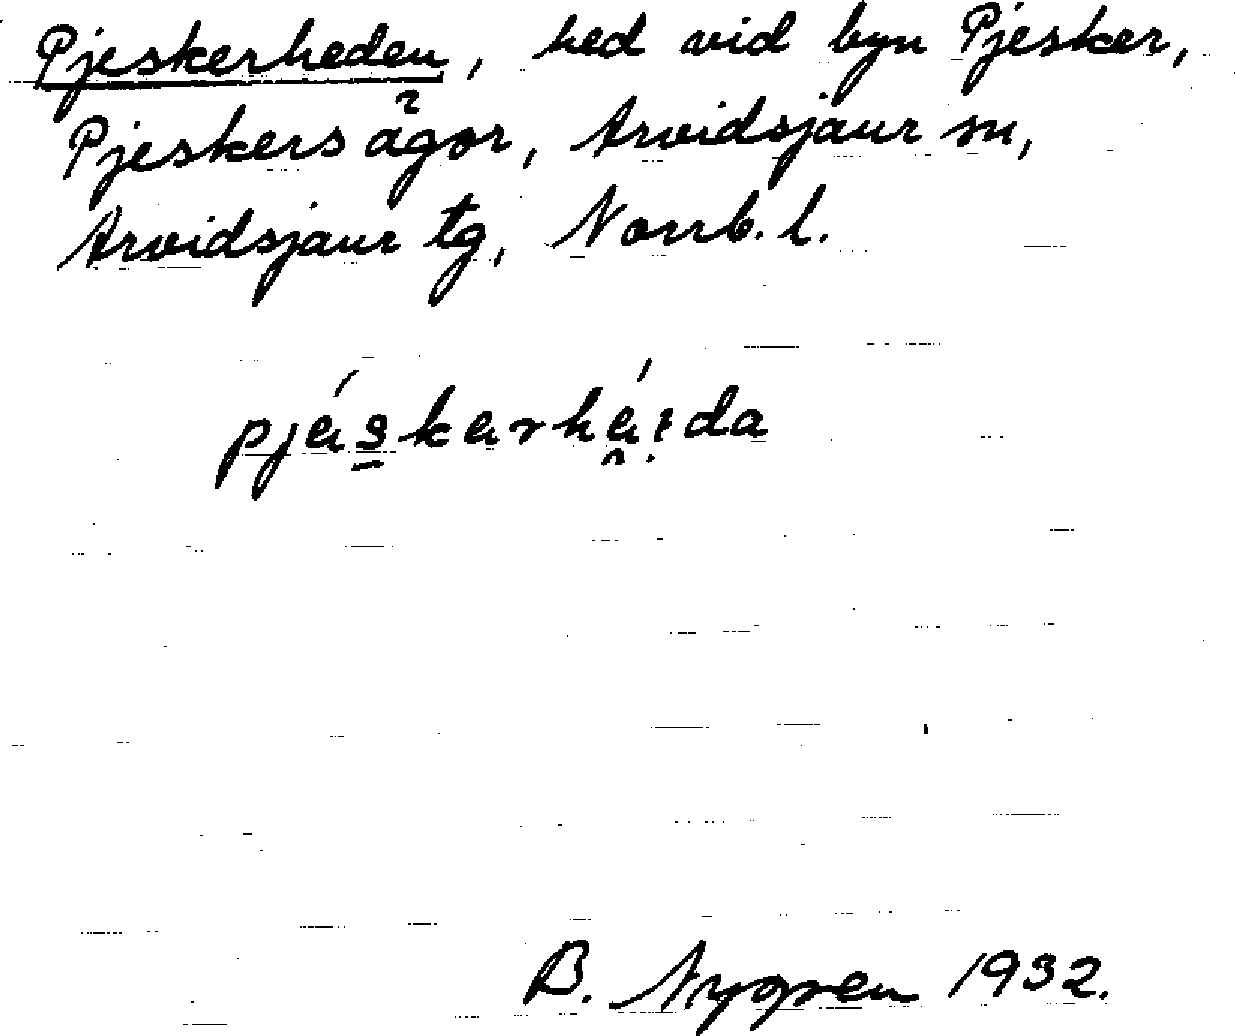 Pjeskerheden, hed vid byn Pjesker,
Pjeskers ägor, Arvidsjaur sn,
Arvidsjaur tg, Norrb. l.
pjáskarhá:da
B. Nygren 1932.